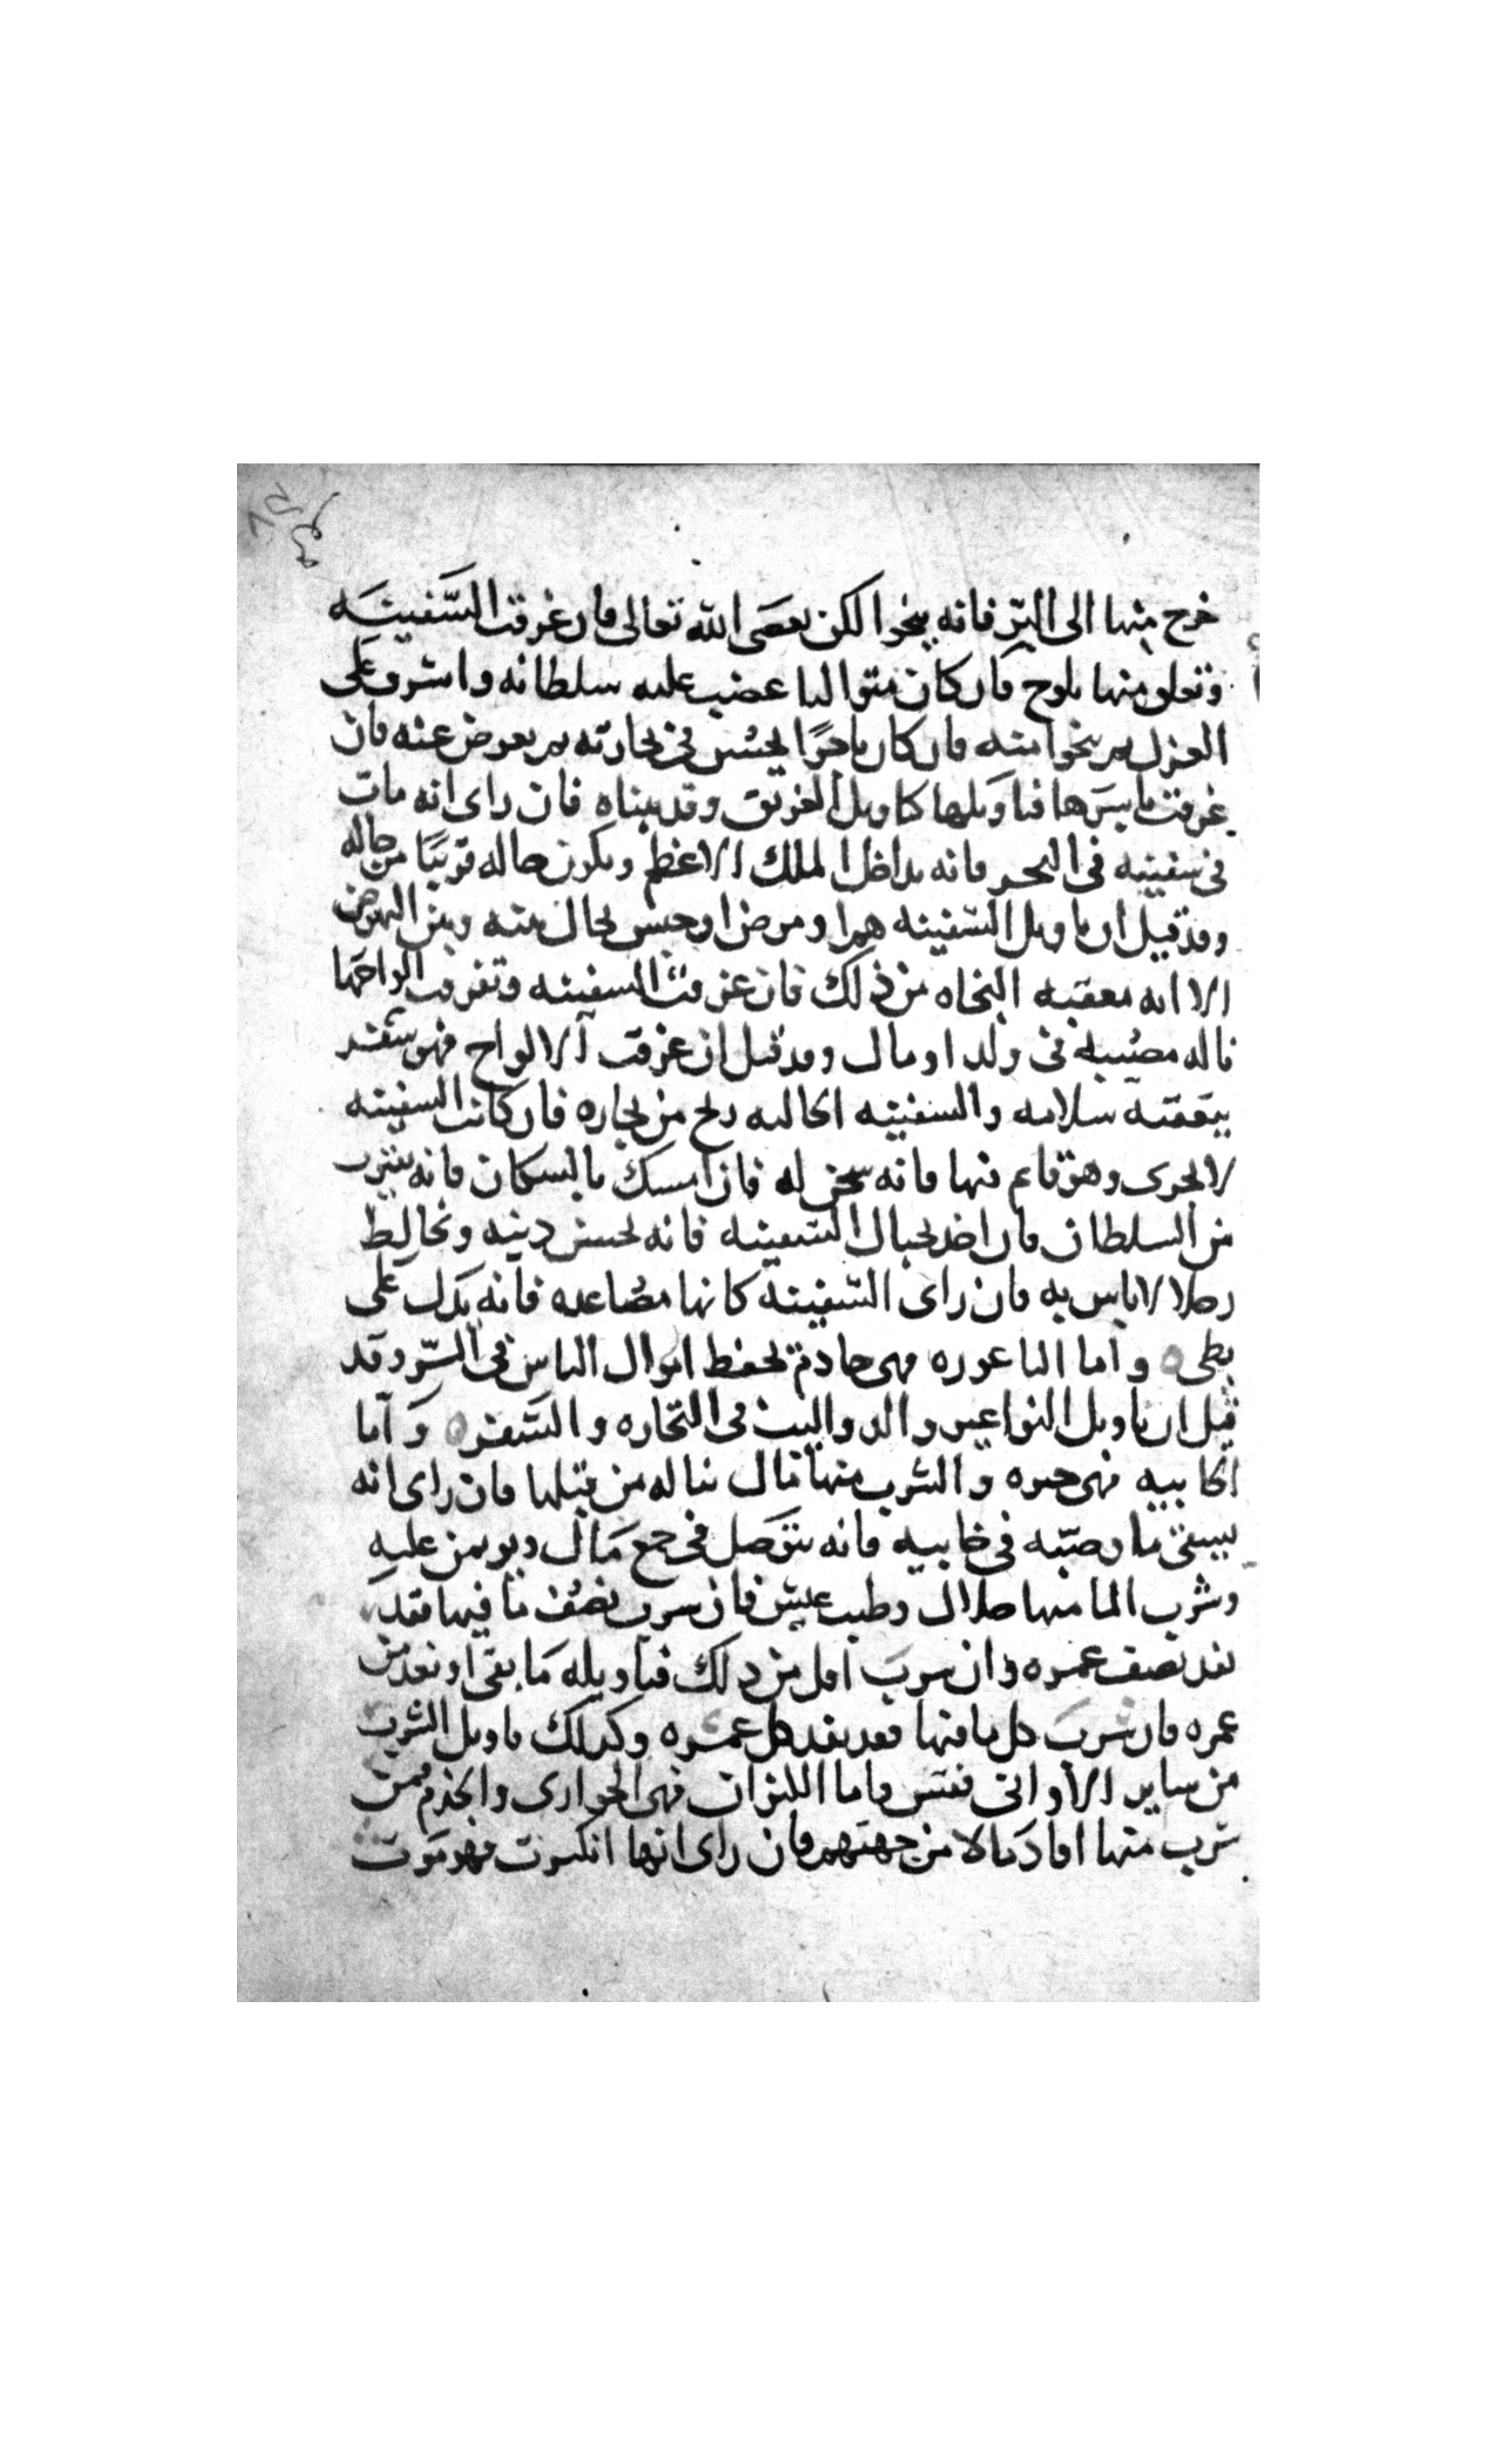 خرج منها الى البرّ فانه ينجوا لكن يعصى الله تعالى فان غرقت السّفينه
وتعلق منها بلوح فان كان متواليا غضب عليه سلطانه واشرف على
العزل ثم ينجوا منه فان كان تاجرًا يخسر في تجارته ثم يعوض عنه فان
غرقت باسرها فتاويلها كتاويل الغريق وقد بيناه فان راى انه مات
في سفينه في البحر فانه يداخل الملك الاعظم ويكون حاله قريبًا من حاله
وقد قيل ان تاويل السفينه هم او مرض او حبس يحال بينه وبين النهوض
الا انه يعقبه النجاه من ذلك فان غرقت السفينه وتفرقت الواحها
ناله مصيبه في ولد او مال وقد قيل ان غرقت الالواح فهو سفر
بتعقبه سلامه والسفينه الخاليه ربح من تجاره فان كانت السفينه
لا تجرى وهو قايم فيها فانه سجن له فان امسك بالسكان فانه يتقرب
من السلطان فان اخذ بحبال السفينه فانه يحسن دينه ويخالط
رجلا لا باس به فان راى السفينه كانها مصاعده فانه يدل على
بطى ه واما الناعوره فهى خادم تحفظ اموال الناس في السّر وقد
قيل ان تاويل النواعير والدواليب في التجاره والسفر ه وَاما
الخابيه فهى حره والشرب منها مال يناله من قبلها فان راى انه
يستقى ما وصبّه في خابيه فانه يتوصل في جمع مَال ويوتمن عليهِ
وشرب الما منها حلال وطيب عيش فان شرب نصف ما فيها فقد
نفد نصف عمره وان شرب اقل من ذلك فتاويله مَا بقى او نفد من
عمره فان شرب كل ما فيها فقد نفد كل عمره وكذلك تاويل الشرب
من ساير الاوانى فقس واما الكيزان فهى الجوارى والخدم فمن
شرب منها افاد مالا من جهتهم فان راى انها انكسرت فهو موت